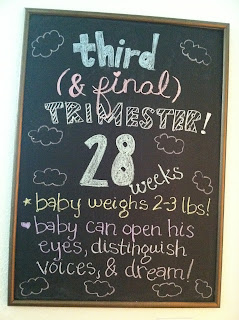 third
(& final)
TRIMESTER!
28
weeks
★ baby weighs 2-3 lbs!
♥ baby can open his
eyes, distinguish
voices, & dream!